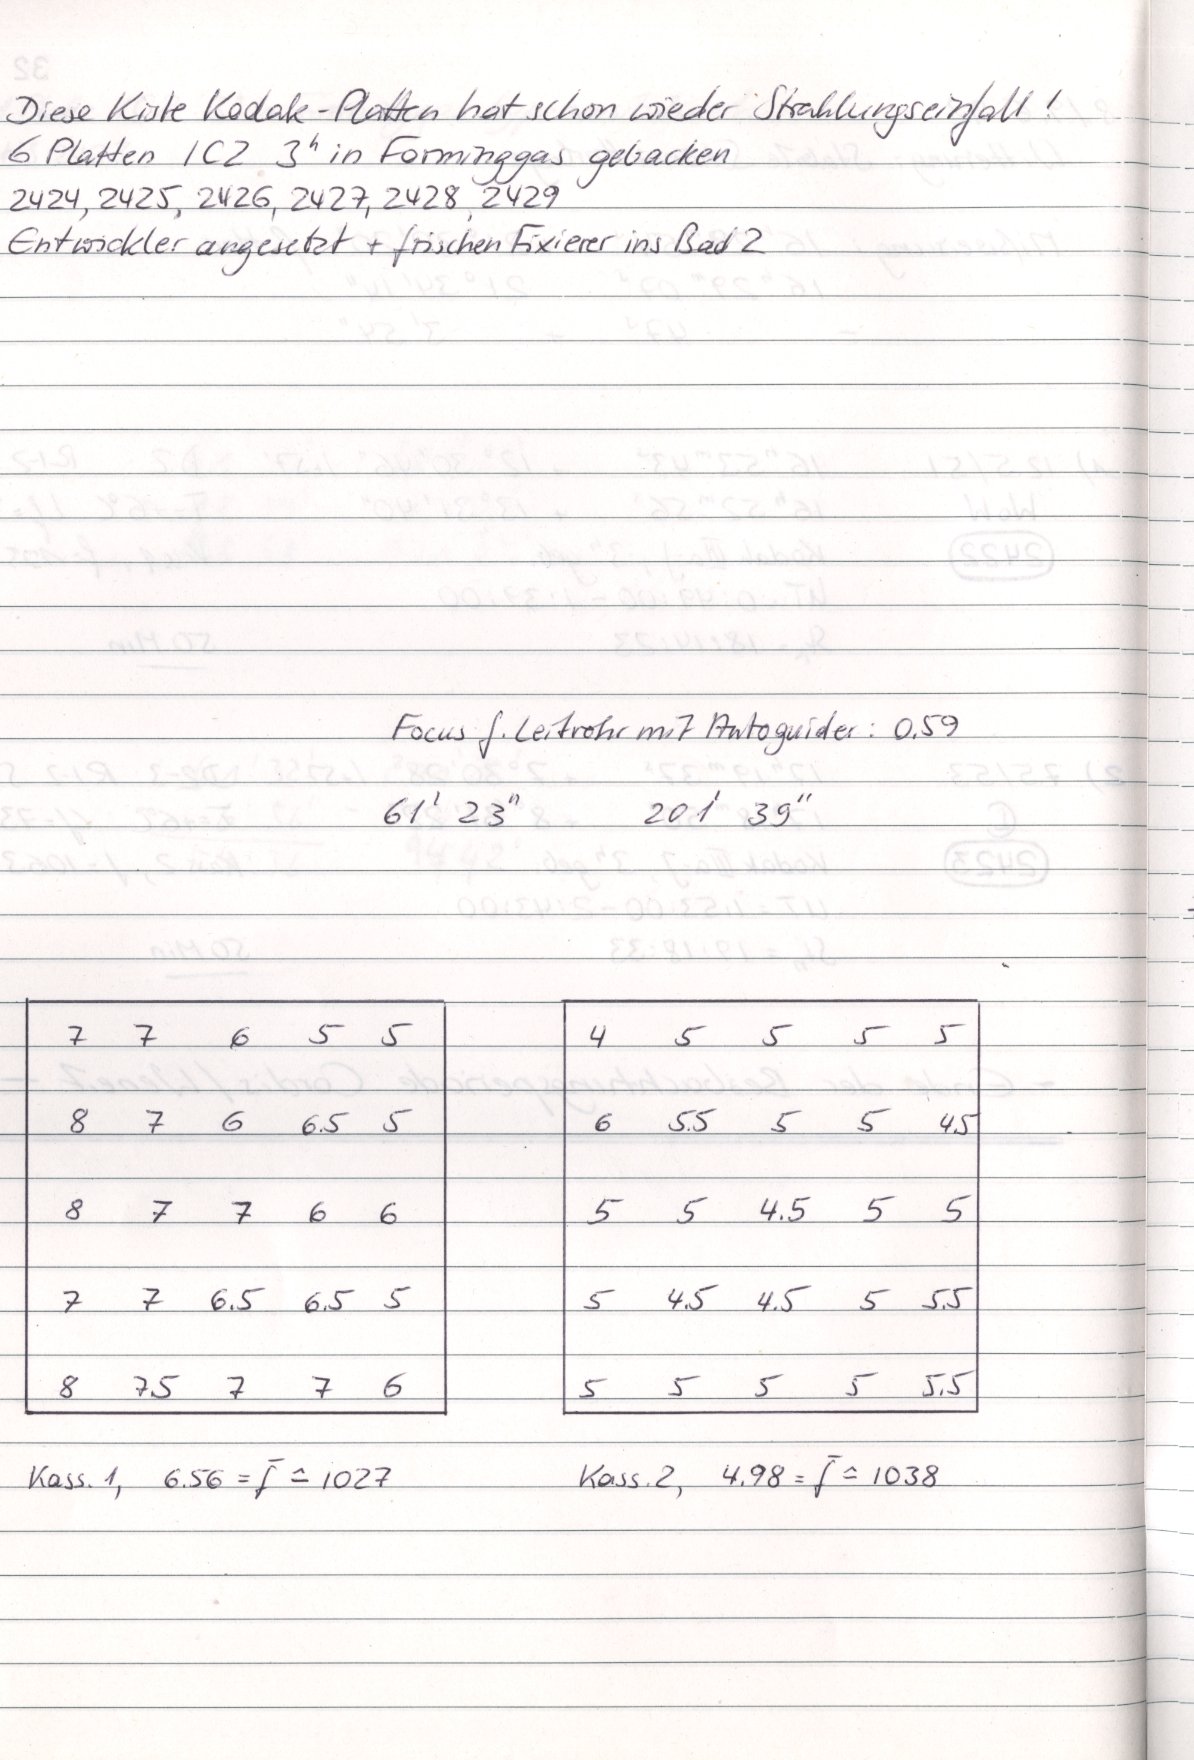 Diese Kiste Kodak-Platten hat schon wieder Strahlungseinfall!
6 Platten IC2 3ʰ in Forminggas gebacken
2424, 2425, 2426, 2427, 2428, 2429
Entwickler angesetzt + frischen Fixierer ins Bad 2
Focus f. Leitrohr mit Autoguider: 0.59
61' 23" 201' 39"
7 7 6 5 5
8 7 6 6.5 5
8 7 7 6 6
7 7 6.5 6.5 5
8 7.5 7 7 6
Kass. 1, 6.56 = f̄ ≙ 1027
4 5 5 5 5
6 5.5 5 5 4.5
5 5 4.5 5 5
5 4.5 4.5 5 5.5
5 5 5 5 5.5
Kass. 2, 4.98 = f̄ ≙ 1038